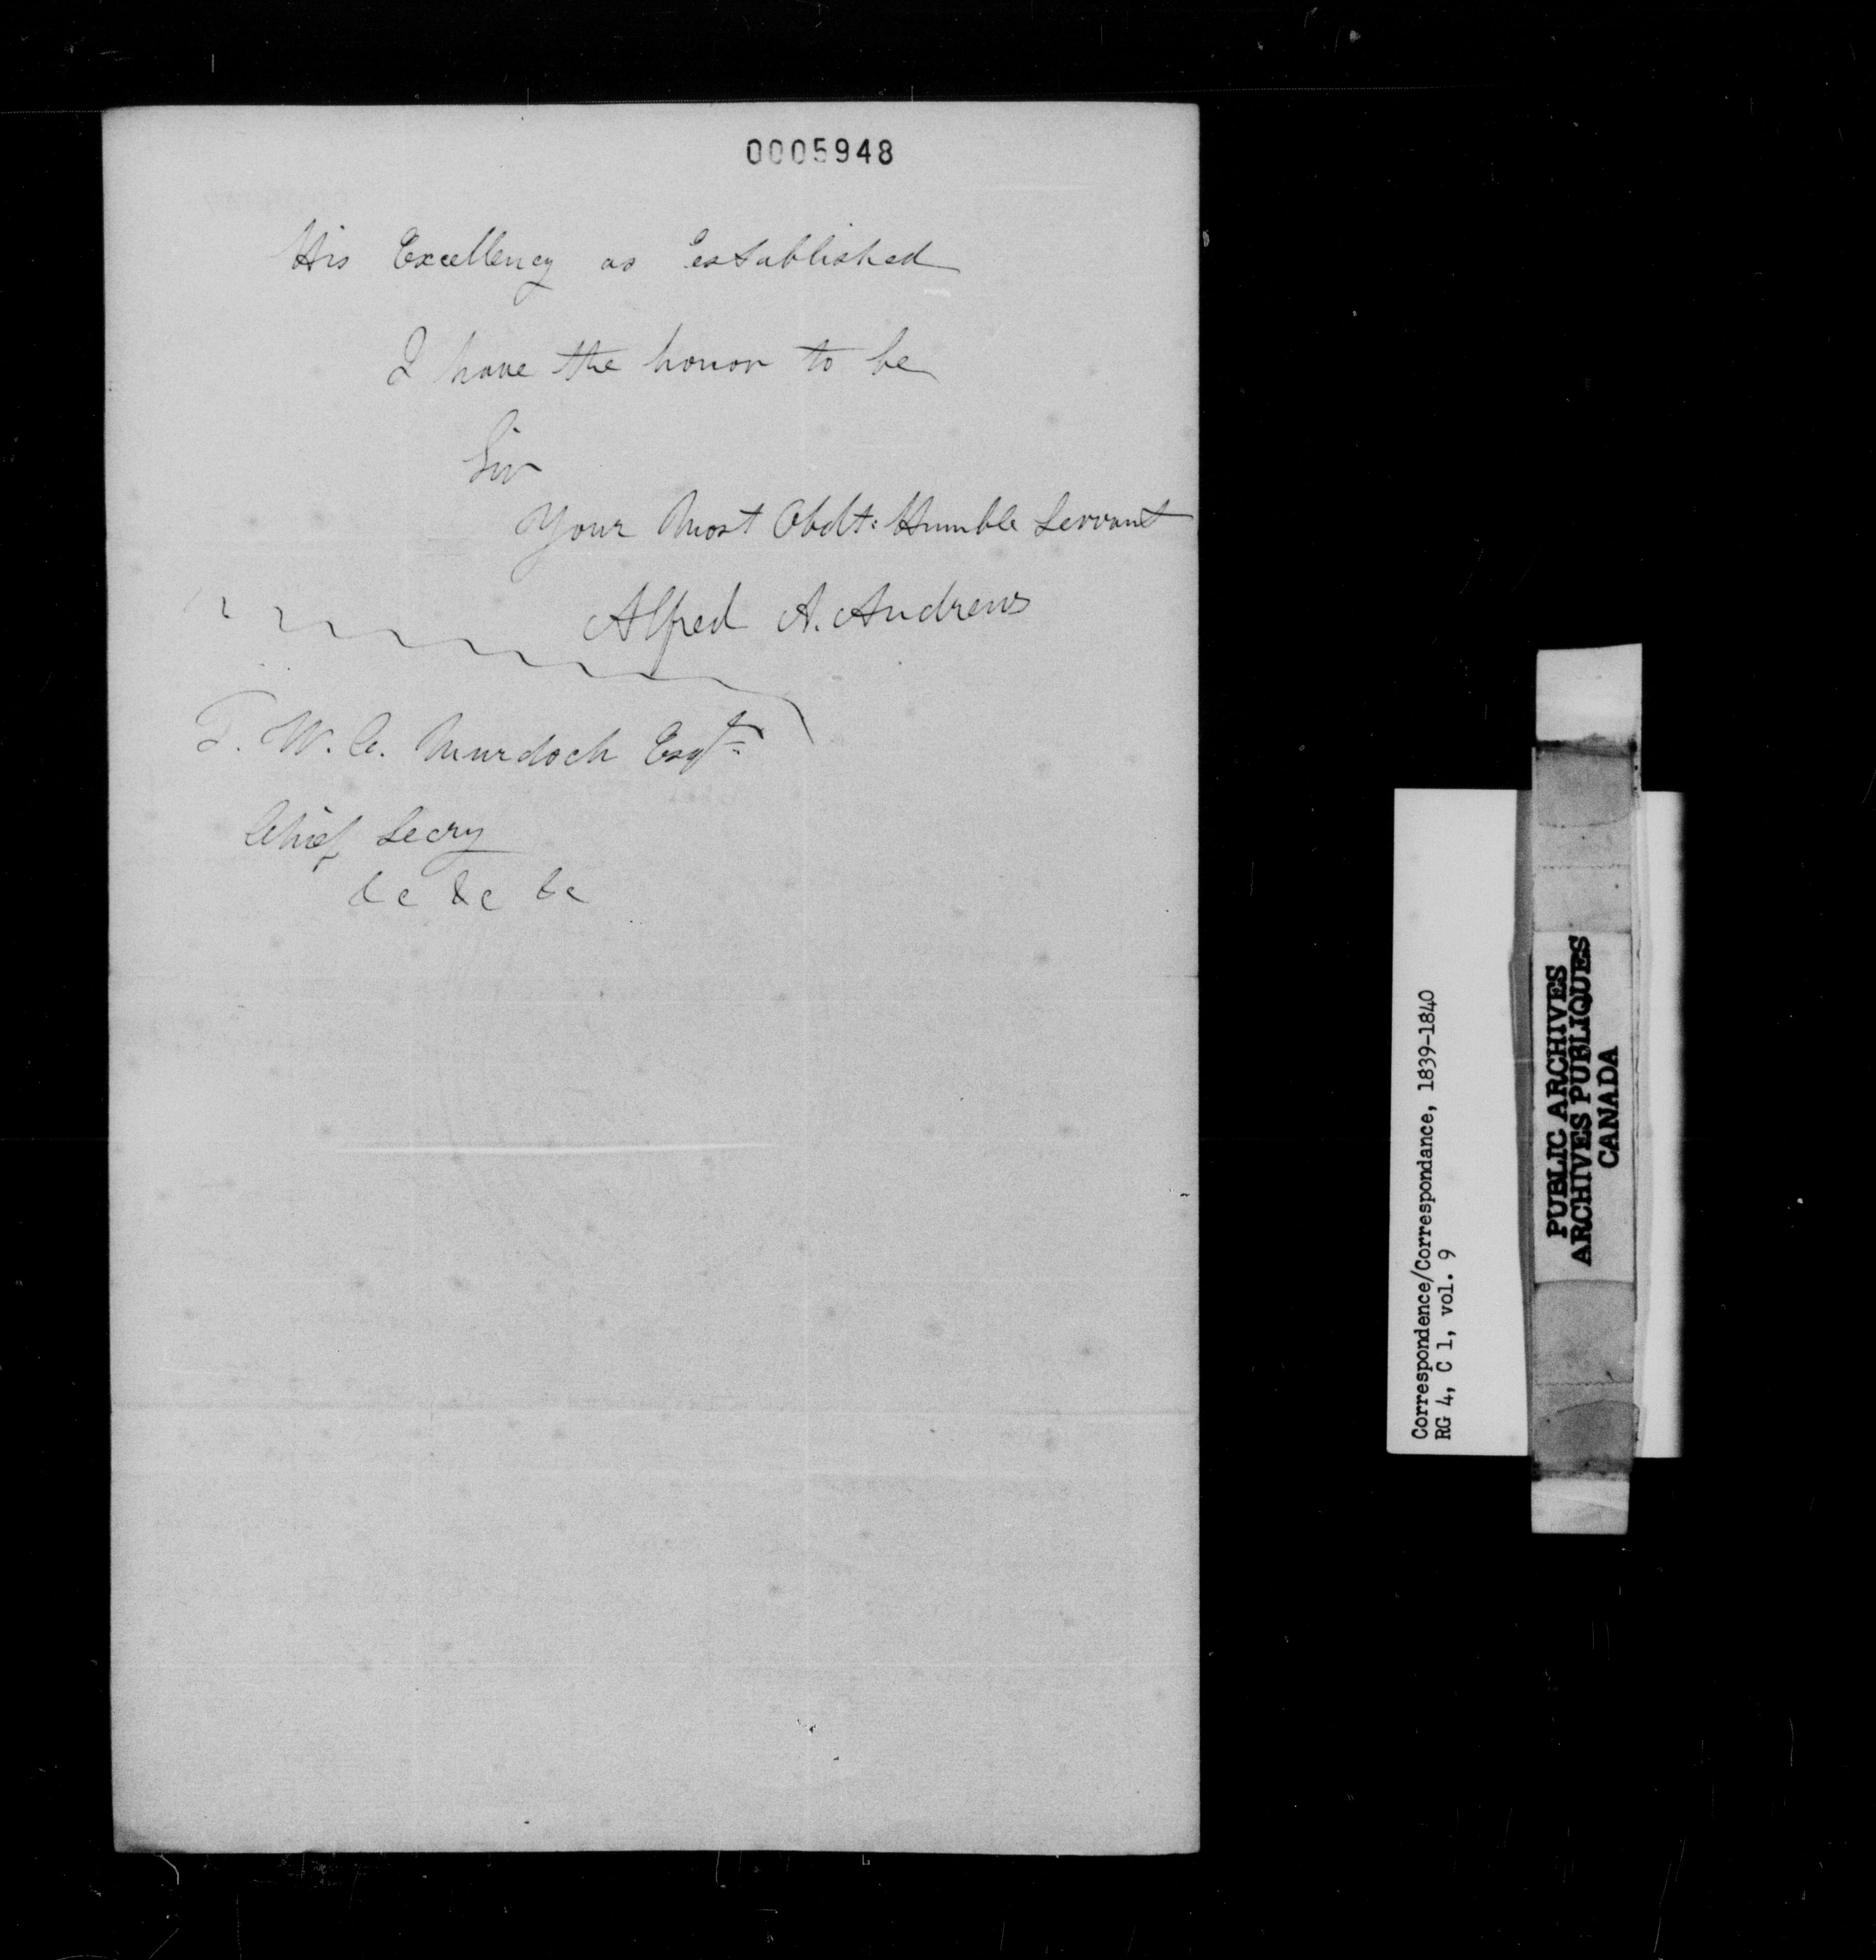 0005948
His Excellency as established
I have the honor to be
Sir
Your Most Obdt: Humble Servant
Alfred A. Andrews
T. W. C. Murdoch Esqr
Chief Secry
&c &c &c
Correspondence/Correspondance, 1839-1840
RG 4, C 1, vol. 9
PUBLIC ARCHIVES
ARCHIVES PUBLIQUES
CANADA